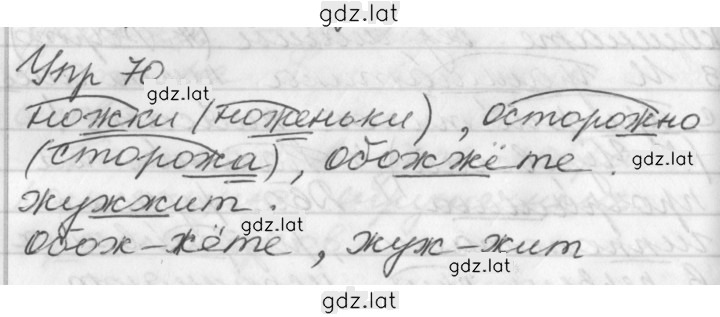 gdz.lat
Упр 70
gdz.lat
ножки (ноженьки), осторожно
(сторожа), обожжёте.
gdz.lat
жужжит.
gdz.lat
обож-жёте, жуж-жит
gdz.lat
gdz.lat